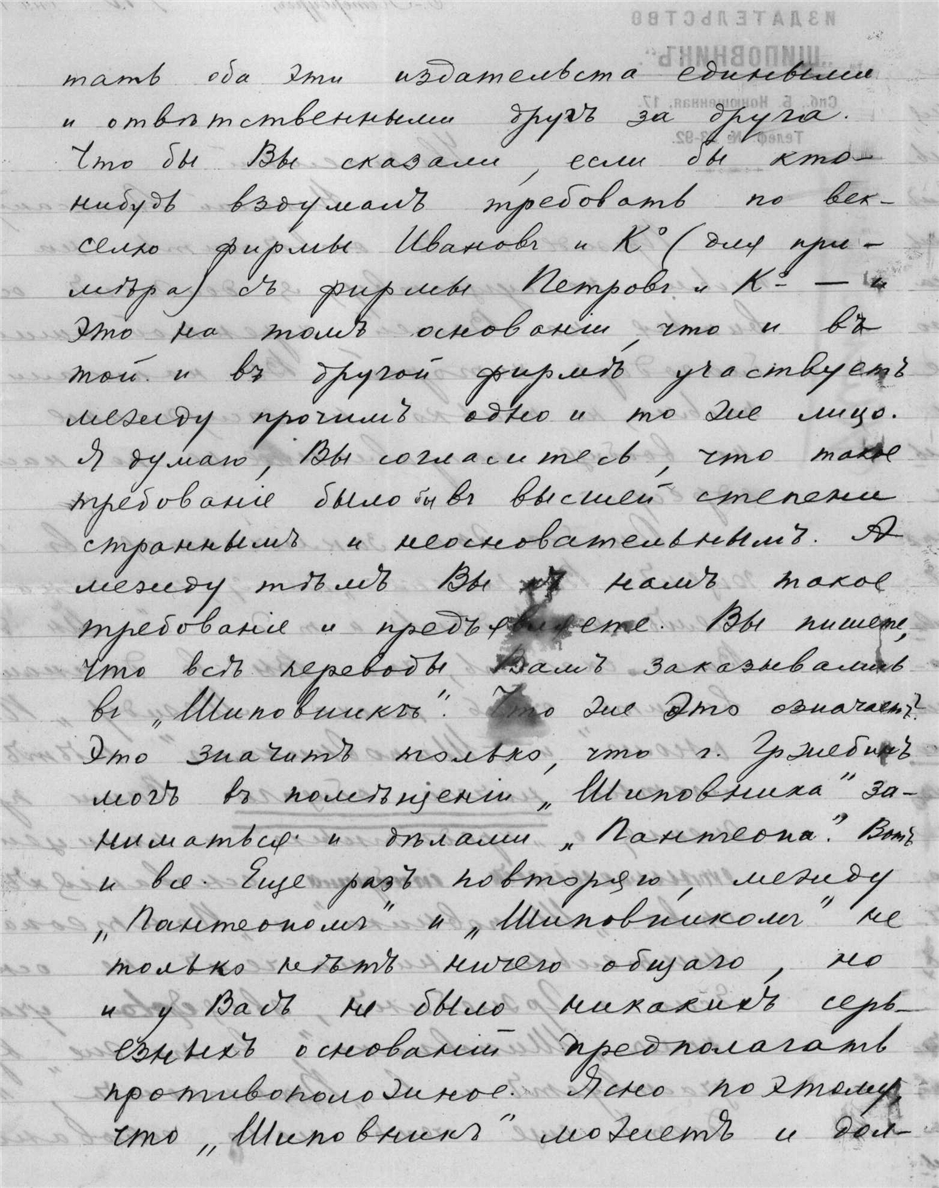 ИЗДАТЕЛЬСТВО
„ШИПОВНИКЪ“.
Спб., Б. Конюшенная, 17.
Телеф. №
тать оба эти издательста едиными
и отвѣтственными другъ за друга.
Что бы Вы сказали, если бы кто-
нибудь вздумалъ требовать по век-
селю фирмы Ивановъ и Кº (для при-
мѣра) съ фирмы Петровъ и Кº — и
это на томъ основаніи, что и въ
той и въ другой фирмѣ участвуетъ
между прочимъ одно и то же лицо.
Я думаю, Вы согласитесь, что такое
требованіе было бы въ высшей степени
страннымъ и неосновательнымъ. А
между тѣмъ Вы къ намъ такое
требованіе и предъявляете. Вы пишете,
что всѣ переводы Вамъ заказывались
въ „Шиповникѣ“. Что же это означаетъ?
Это значитъ только, что г. Гржебинъ
могъ въ помѣщеніи „Шиповника“ за-
ниматься и дѣлами „Пантеона“. Вотъ
и все. Еще разъ повторяю, между
„Пантеономъ“ и „Шиповникомъ“ не
только нѣтъ ничего общаго, но
и у Васъ не было никакихъ серь-
езныхъ основаній предполагать
противоположное. Ясно поэтому,
что „Шиповникъ“ можетъ и дол-